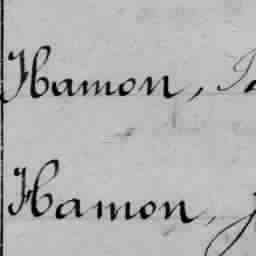 Hamon,
Hamon,